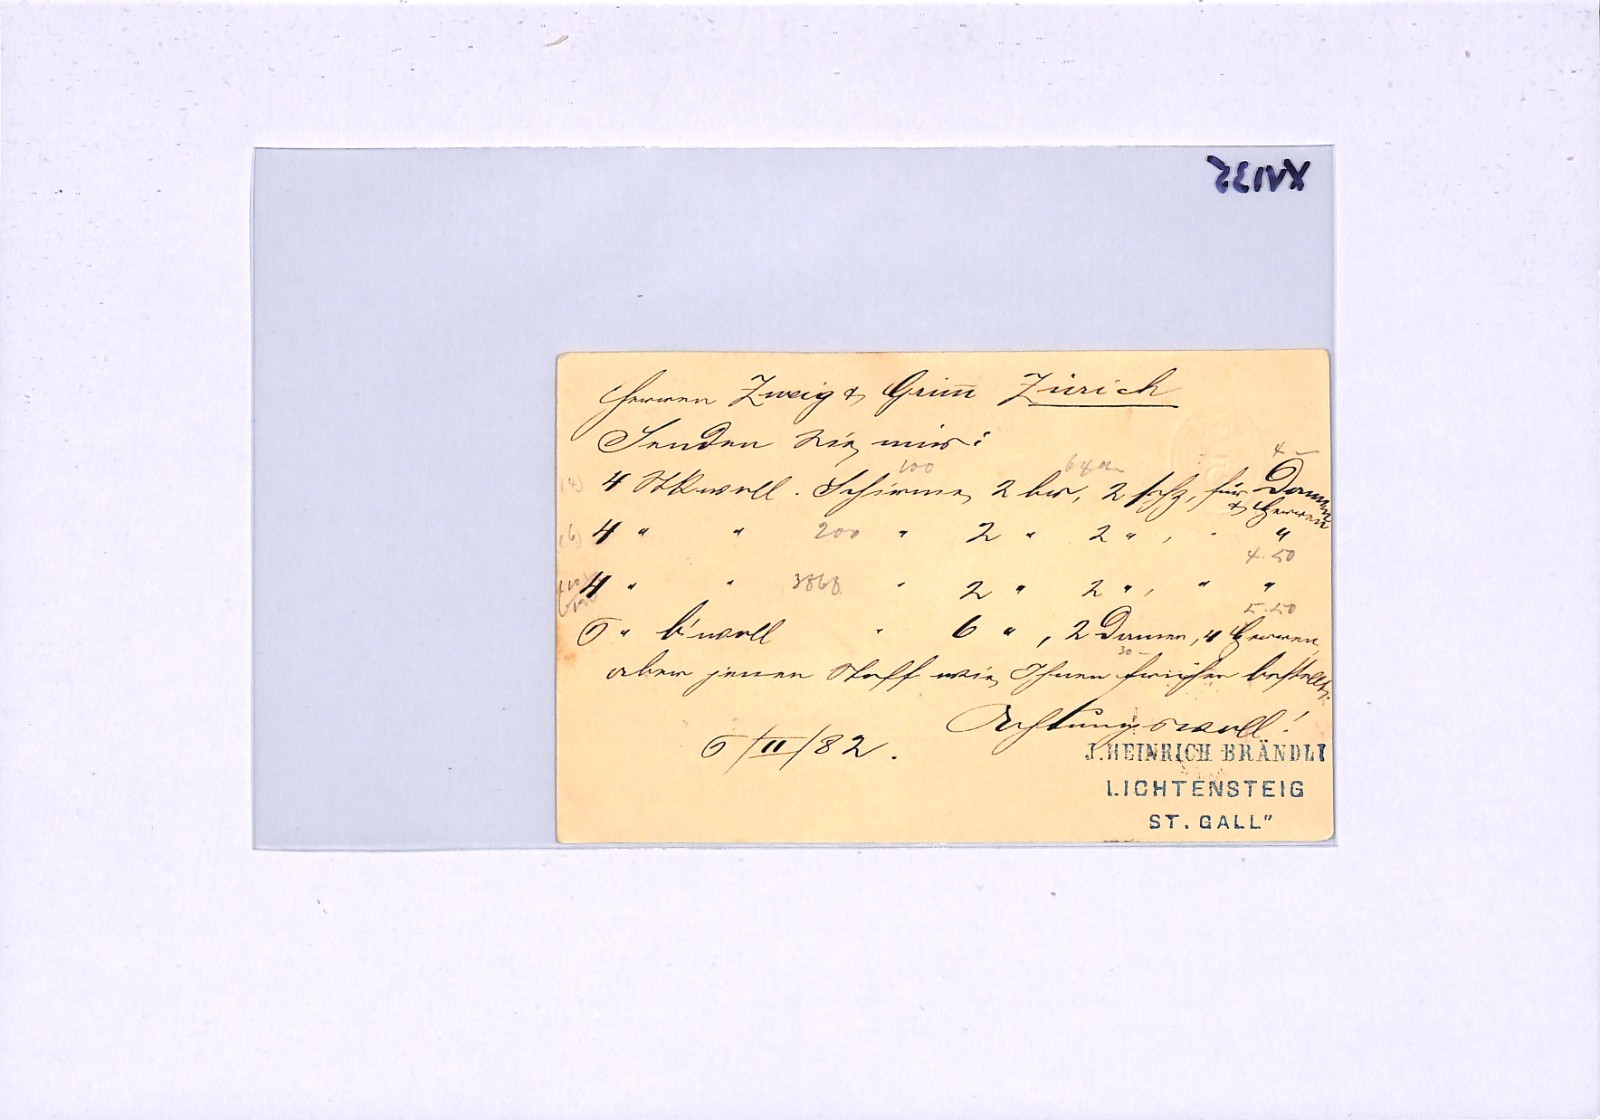 XV132
Herren Zweig & Grim̄ Zürich
Senden Sie mir:
4 –
100
4 Stk woll. Schirme, 2 br, 2 schz, für Damen
& Herren
4 " " 200 " 2 " 2 " , " "
4.50
4 " " 386 " 2 " 2 " , " "
5.50
6 " b'woll " 6 " , 2 Damen, 4 Herren,
30 –
aber jenen Stoff wie Ihnen früher bestellt.
Achtungsvoll!
6/II/82.
J. HEINRICH BRÄNDLI
LICHTENSTEIG
ST. GALL"